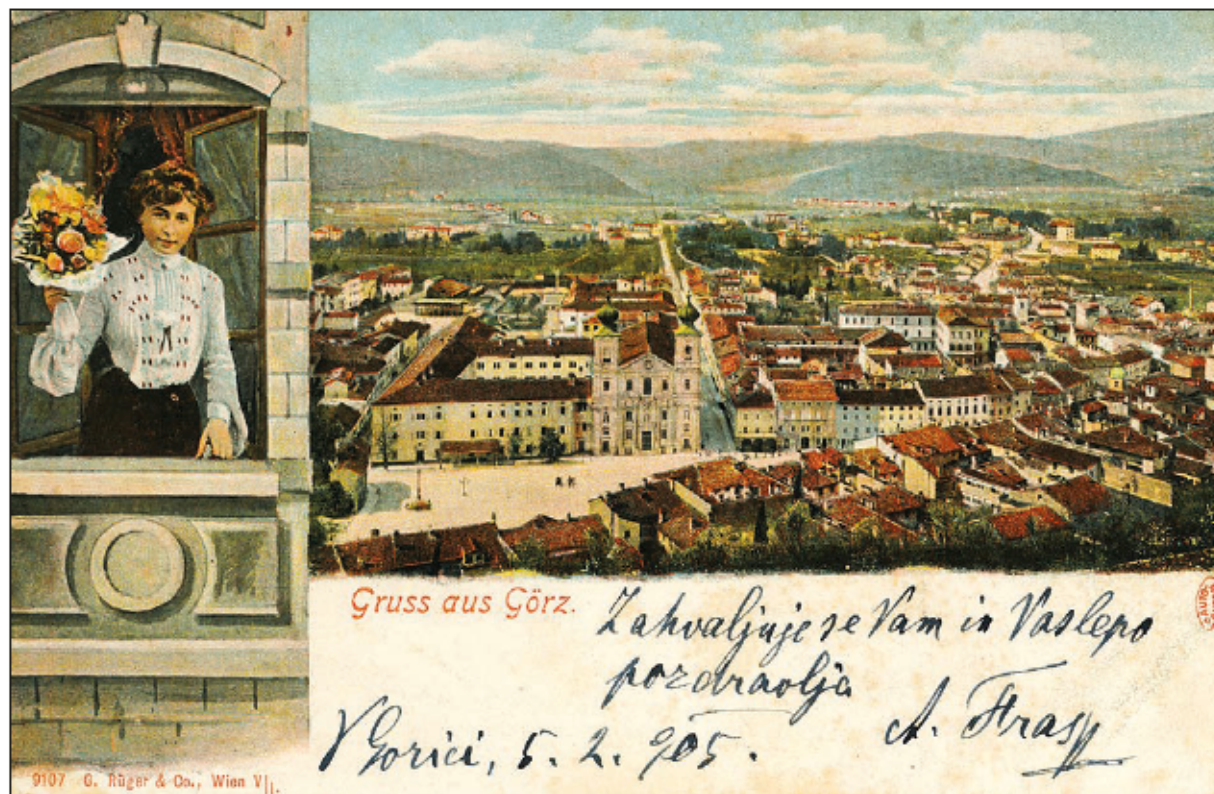 Gruss aus Görz.
Zahvaljuje se Vam in Vas lepo
pozdravlja
A. Fras
V Gorici, 5. 2. 905.
9107 C. Rüger & Co., Wien V|1.